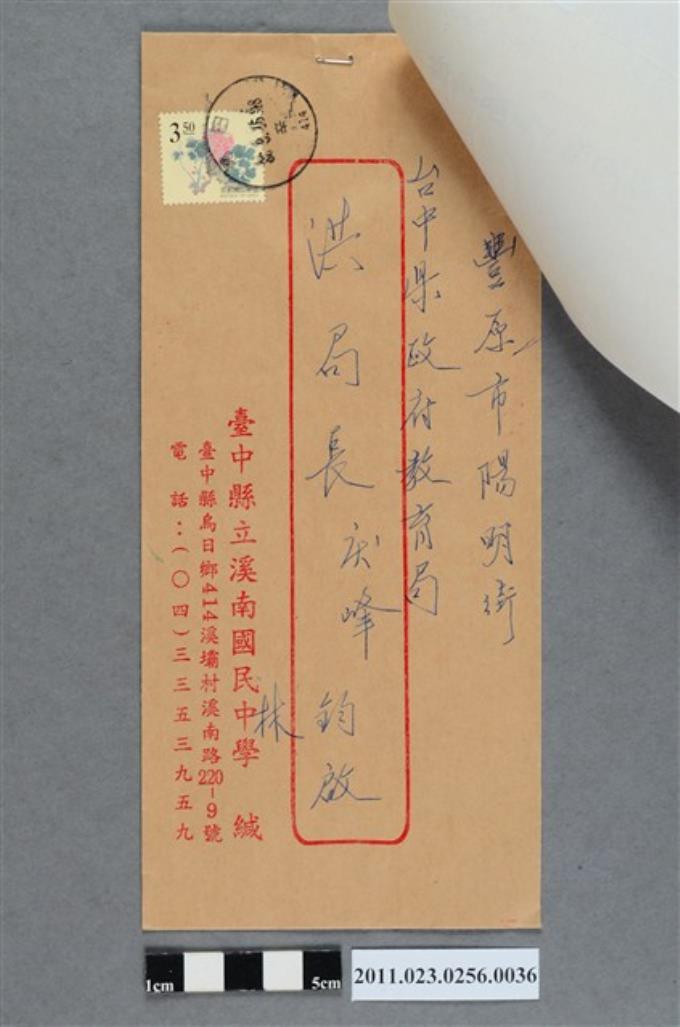 豐原市陽明街
台中県政府教育局
洪局長慶峰鈞啟
臺中縣立溪南國民中學 緘
林
臺中縣烏日鄉414溪壩村溪南路220-9號
電話：(〇四)三三五三九五九
3 50
414
1cm
5cm
2011.023.0256.0036